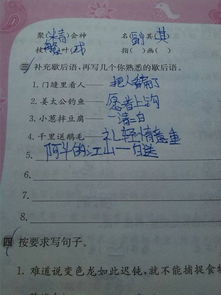 聚精会神 名副其
按 叶 戏 指( )画( )
三 补充歇后语,再写几个你熟悉的歇后语。
1. 门缝里看人——把人看扁了
2. 姜太公钓鱼——愿者上钩
3. 小葱拌豆腐——一清二白
4. 千里送鹅毛——礼轻情意重
5. 阿斗的江山——白送
四 按要求写句子。
1. 难道说变色龙如此迟钝,就不能捕捉食